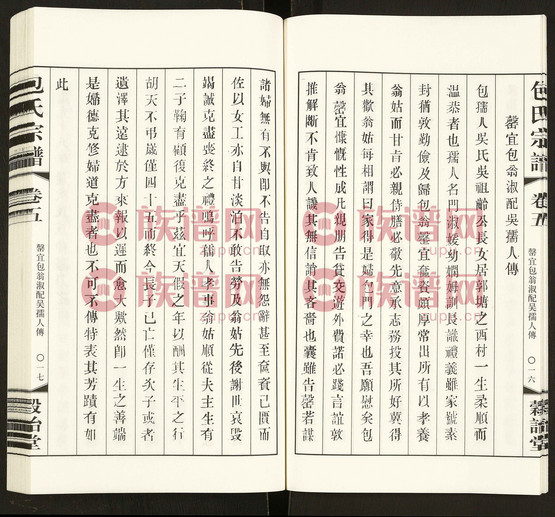 包氏宗譜
卷五
罄宜包翁淑配吳孺人傳
〇一六
穀詒堂
罄宜包翁淑配吳孺人傳
包孺人吳氏吳祖齡公長女居郭塘之西村一生柔順而
溫恭者也孺人名門淑媛幼嫻好訓長識禮義雖家號素
封猶敦勤儉及歸包翁罄宜奩資頗厚常出所有以孝養
翁姑而甘旨必親侍膳必敬先意承志務投其所好冀得
其歡翁姑每相謂曰家得是婦包門之幸也吾願慰矣包
翁罄宜慷慨性成凡親朋告貸交遊外費諾必踐言誼敦
推解斷不肯致人譏其無信誚其吝嗇也囊雖告罄若謀
諸婦無有不與即不肯自取亦無怨辭甚至奩資已匱而
佐以女工亦自甘淡泊不敢告勞及翁姑先後謝世哀毀
竭誠克盡喪終之禮嗚呼孺人孝事翁姑順從夫主生有
二子鞠育顧復克盡乎茲宜天假之年以酬其生平之行
胡天不弔歲僅四十五而終今長子已亡僅存次子或者
遺澤其遠逮於方來報以遲而愈大歟然即一生之善端
是婚德克修婦道克盡者也不可不傳特表其芳蹟有如
此
包氏宗譜
卷五
罄宜包翁淑配吳孺人傳
〇一七
穀詒堂
族譜网
zupu.cn
族譜网
zupu.cn